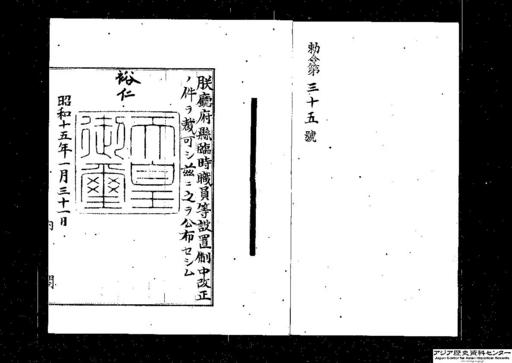 勅令第三十五號
朕廳府縣臨時職員等設置制中改正
ノ件ヲ裁可シ茲ニ之ヲ公布セシム
裕仁
天皇
御璽
昭和十五年一月三十一日
内閣
アジア歴史資料センター
Japan Center for Asian Historical Records